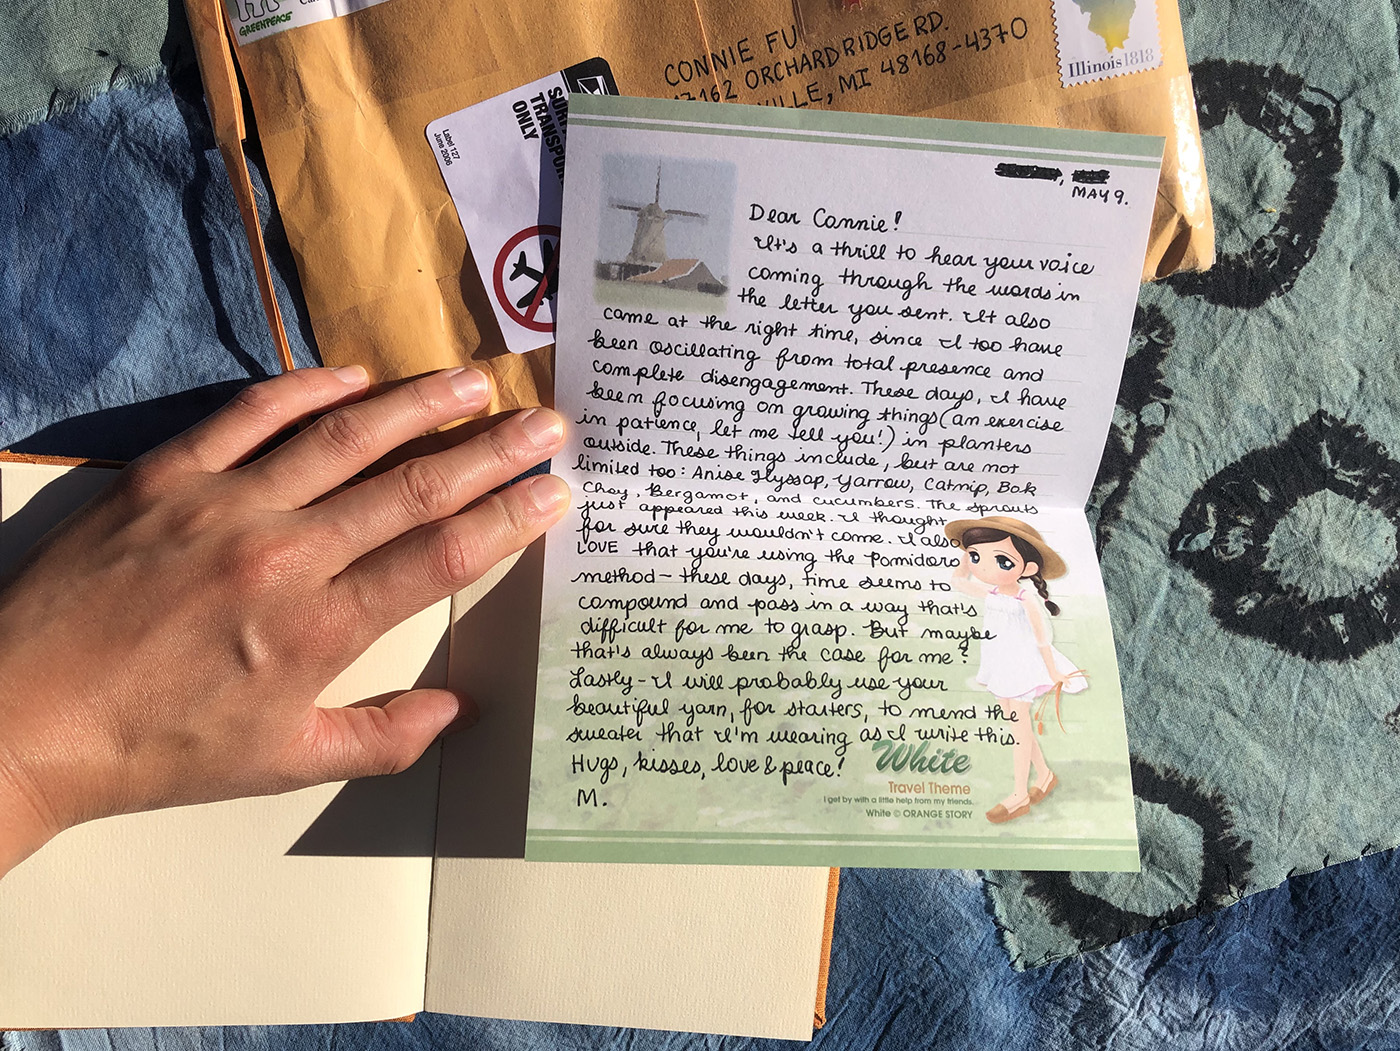 GREENPEACE
CONNIE FU
17162 ORCHARD RIDGE RD.
VILLE, MI 48168-4370
Illinois 1818
Label 127
June 2006
TRANSPOR
ONLY
MAY 9.
Dear Connie!
It's a thrill to hear your voice
coming through the words in
the letter you sent. It also
came at the right time, since I too have
been oscillating from total presence and
complete disengagement. These days, I have
been focusing on growing things (an exercise
in patience, let me tell you!) in planters
outside. These things include, but are not
limited too: Anise Hyssop, Yarrow, Catnip, Bok
Choy, Bergamot, and cucumbers. The sprouts
just appeared this week. I thought
for sure they wouldn't come. I also
LOVE that you're using the Pomidoro
method – these days, time seems to
compound and pass in a way that's
difficult for me to grasp. But maybe
that's always been the case for me?
Lastly – I will probably use your
beautiful yarn, for starters, to mend the
sweater that I'm wearing as I write this.
Hugs, kisses, love & peace!
M.
White
Travel Theme
I get by with a little help from my friends.
White © ORANGE STORY